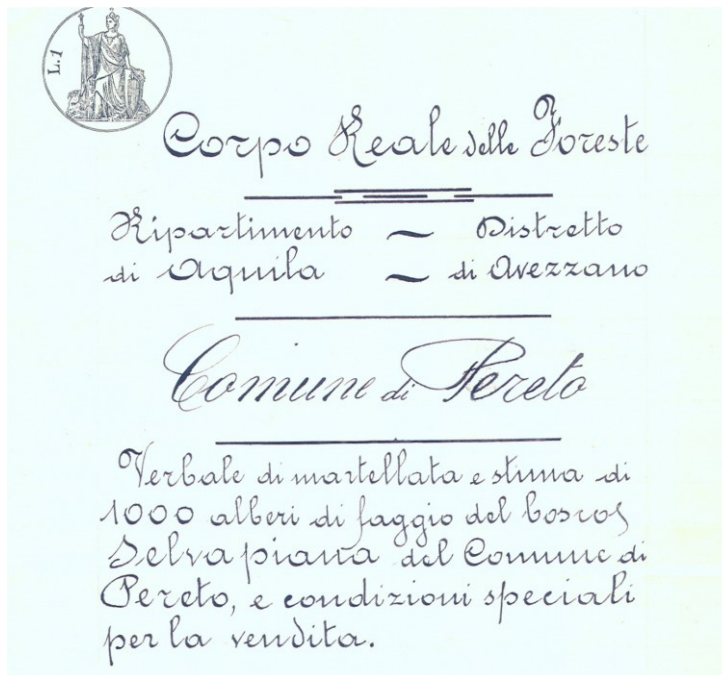 L.1
Corpo Reale delle Foreste
Ripartimento ~ Distretto
di Aquila ~ di Avezzano
Comune di Pereto
Verbale di martellata e stima di
1000 alberi di faggio del bosco
Selva piana del Comune di
Pereto, e condizioni speciali
per la vendita.